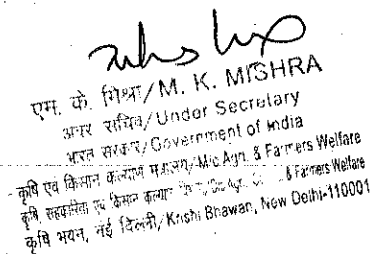 एम. के. मिश्रा/M. K. MISHRA
अवर सचिव/Under Secretary
भारत सरकार/Government of India
कृषि एवं किसान कल्याण मंत्रालय/M/o Agri. & Farmers Welfare
कृषि, सहकारिता एवं किसान कल्याण & Farmers Welfare
कृषि भवन, नई दिल्ली/Krishi Bhawan, New Delhi-110001